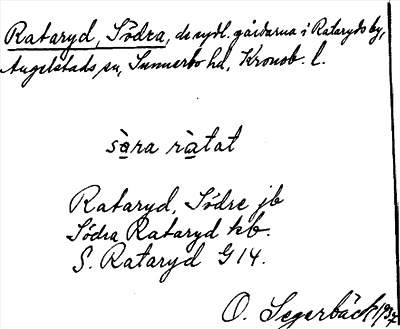 Rataryd, Södra, de sydl. gårdarna i Rataryds by,
Angelstads sn, Sunnerbo hd, Kronob. l.
sȍ̱ra rà̱tat
Rataryd, Södre jb
Södra Rataryd kb.
S. Rataryd G 14.
O. Segerbäck 1937